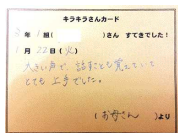 キラキラさんカード
年 1組( )さん すてきでした!
1月22日(火)
大きい声で、詩をとても覚えていて
とても上手でした。
(お母さん)より